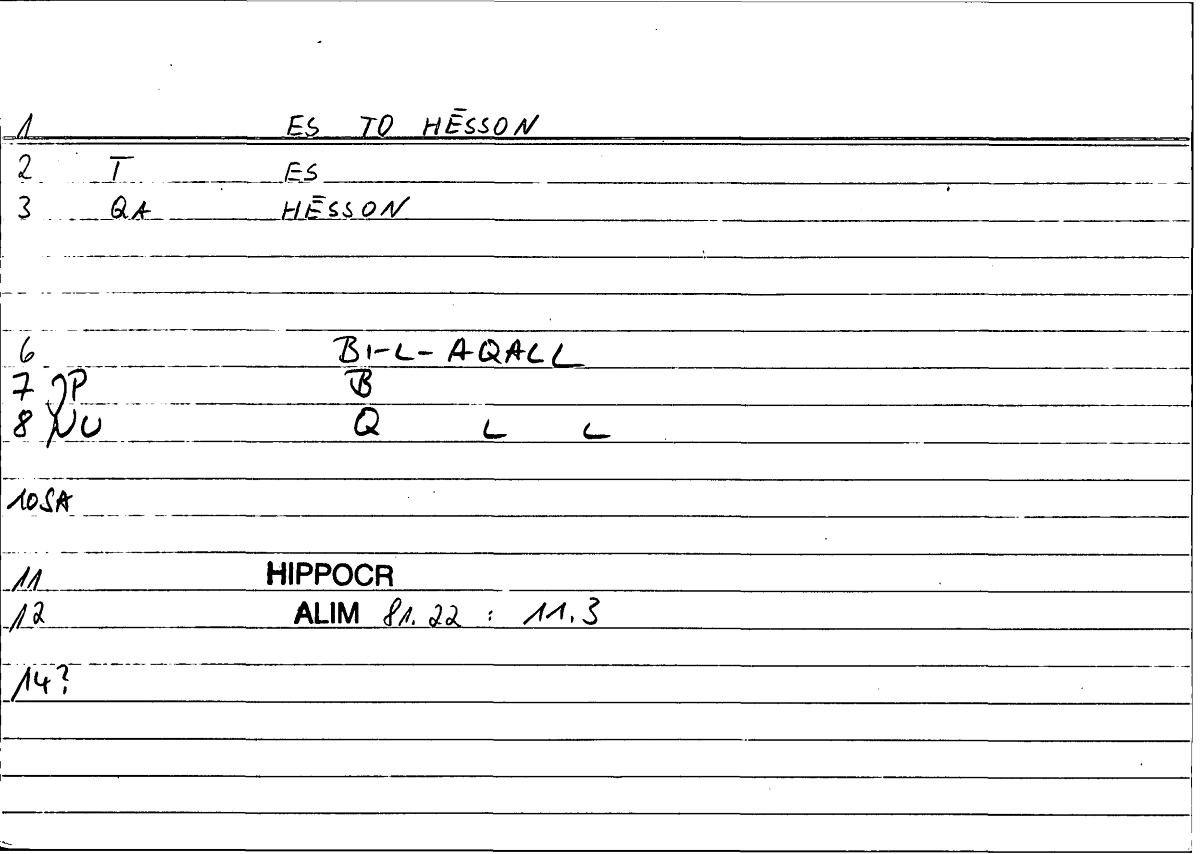 1 ES TO HĒSSON
2 T ES
3 QA HĒSSON
6 BI-L-AQALL
7 JP B
8 NU Q L L
10 SA
11 HIPPOCR
12 ALIM 81.22 : 11.3
14?